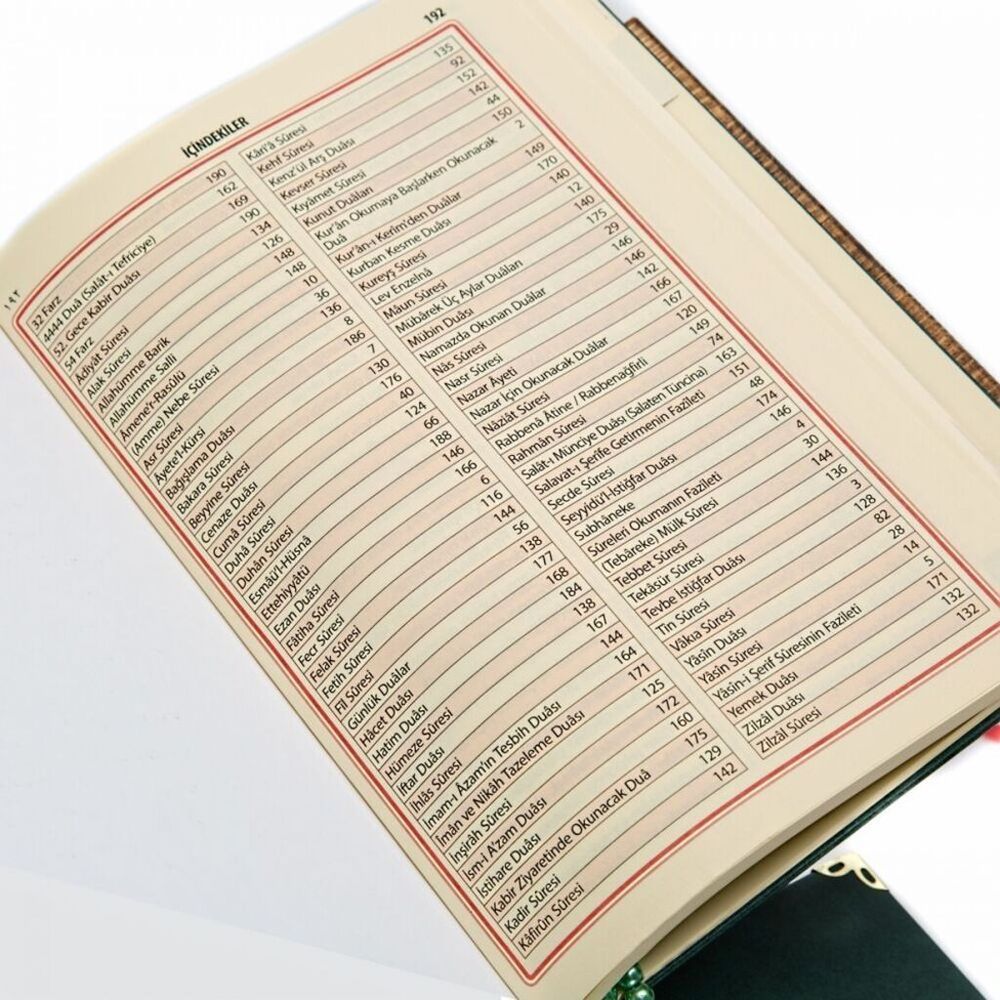 192
İÇİNDEKİLER
١٩٢
32 Farz 190
4444 Duâ (Salât-ı Tefriciye) 162
52. Gece Kabir Duâsı 169
54 Farz 190
Âdiyât Sûresi 134
Alak Sûresi 126
Allahümme Barik 148
Allahümme Salli 148
Âmene'r-Rasûlü 10
(Amme) Nebe Sûresi 36
Asr Sûresi 136
Âyete'l-Kürsi 8
Bağışlama Duâsı 186
Bakara Sûresi 7
Beyyine Sûresi 130
Cenaze Duâsı 176
Cumâ Sûresi 40
Duhâ Sûresi 124
Duhân Sûresi 66
Esmâü'l-Hüsnâ 188
Ettehiyyatü 146
Ezan Duâsı 166
Fâtiha Sûresi 6
Fecr Sûresi 116
Felak Sûresi 144
Fetih Sûresi 56
Fîl Sûresi 138
Günlük Duâlar 177
Hâcet Duâsı 168
Hatim Duâsı 184
Hümeze Sûresi 138
İftar Duâsı 167
İhlâs Sûresi 144
İmam-ı Âzam'ın Tesbih Duâsı 164
Îmân ve Nikâh Tazeleme Duâsı 171
İnşirâh Sûresi 125
İsm-i A'zam Duâsı 172
İstihare Duâsı 160
Kabir Ziyaretinde Okunacak Duâ 175
Kadir Sûresi 129
Kâfirûn Sûresi 142
Kâri'â Sûresi 135
Kehf Sûresi 92
Kenz'ül Arş Duâsı 152
Kevser Sûresi 142
Kıyâmet Sûresi 44
Kunut Duâları 150
Kur'ân Okumaya Başlarken Okunacak 2
Duâ
Kur'ân-ı Kerîm'den Duâlar 149
Kurban Kesme Duâsı 170
Kureyş Sûresi 140
Lev Enzelnâ 12
Mâun Sûresi 140
Mübârek Üç Aylar Duâları 175
Mübin Duâsı 29
Namazda Okunan Duâlar 146
Nâs Sûresi 146
Nasr Sûresi 142
Nazar Âyeti 166
Nazar İçin Okunacak Duâlar 167
Nâziât Sûresi 120
Rabbenâ Âtine / Rabbenağfirli 149
Rahmân Sûresi 74
Salât-ı Münciye Duâsı (Salaten Tüncina) 163
Salavat-ı Şerîfe Getirmenin Fazîleti 151
Secde Sûresi 48
Seyyidü'l-İstiğfar Duâsı 174
Subhâneke 146
Sûreleri Okumanın Fazîleti 4
(Tebâreke) Mülk Sûresi 30
Tebbet Sûresi 144
Tekâsür Sûresi 136
Tevbe İstiğfar Duâsı 3
Tin Sûresi 128
Vâkıa Sûresi 82
Yâsîn Duâsı 28
Yâsîn Sûresi 14
Yâsîn-i Şerif Sûresinin Fazîleti 5
Yemek Duâsı 171
Zilzâl Duâsı 132
Zilzâl Sûresi 132